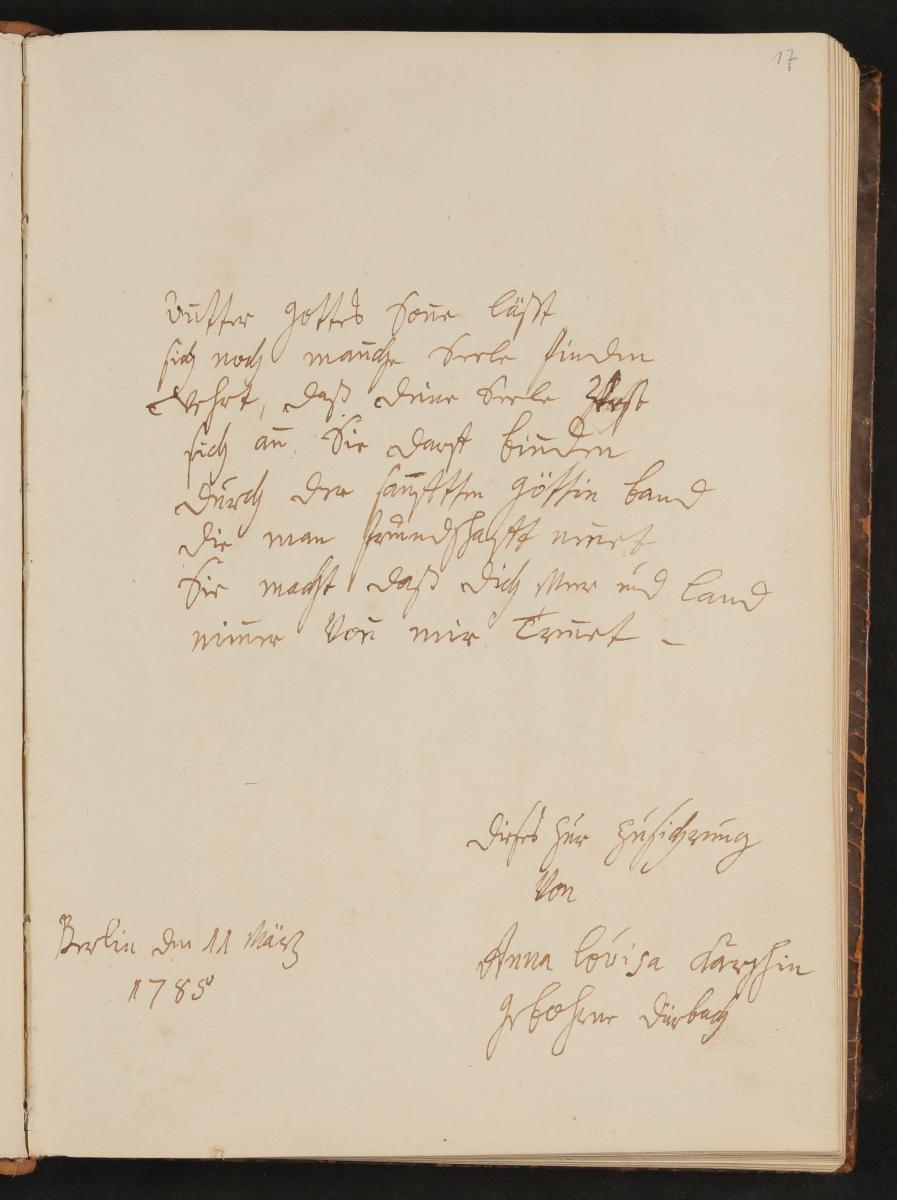 17
Unter Gottes Sonne läßt
sich noch manche Seele finden
Wehrt, daß deine Seele
sich an Sie darf binden
durch der sanfften göttin band
die man freundschafft nennet
Sie macht daß dich Meer und Land
nimmer Von mir Trennet –
dieses zur zusichrung
Von
Anna Louisa Karschin
gebohrne dürbach
Berlin den 11 März
1785